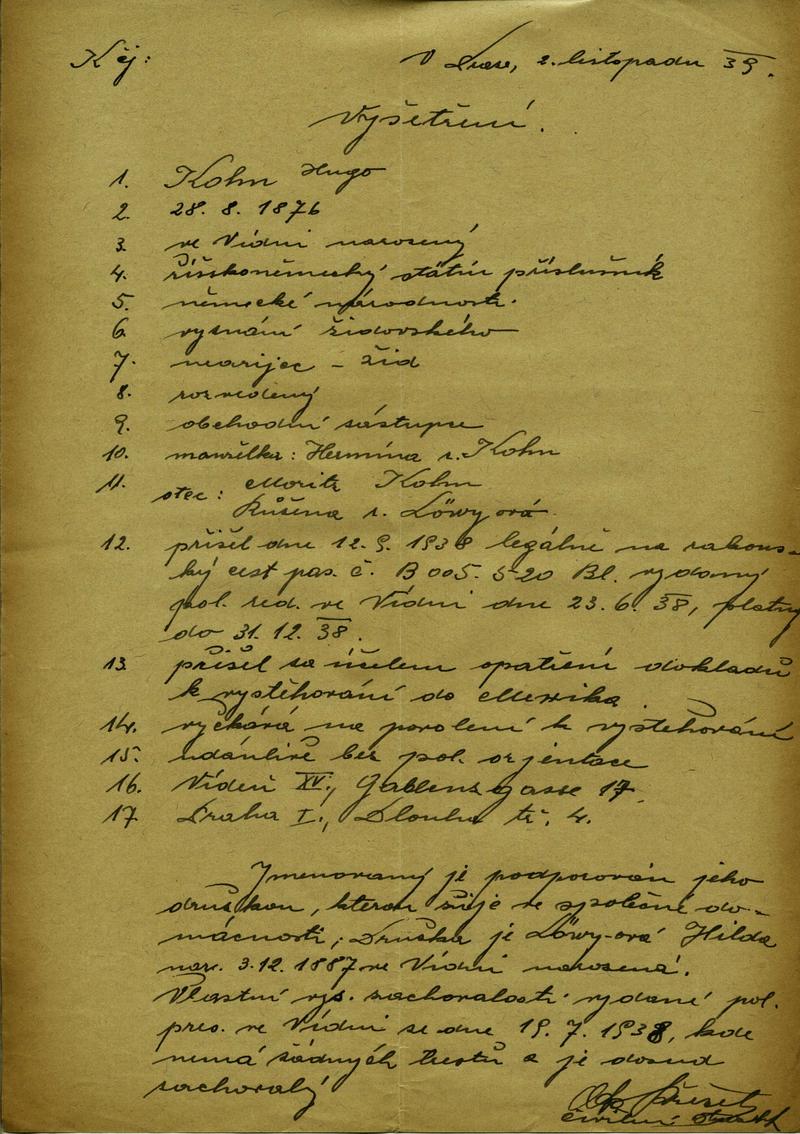 K čj:
V Praze, 2. listopadu 39.
Vyšetření.
1. Kohn Hugo
2. 28. 8. 1876
3. ve Vídni narozený
4. říšskoněmecký státní příslušník
5. německé národnosti.
6. vyznání židovského
7. nearijec – žid
8. rozvedený
9. obchodní zástupce
10. manželka: Hermína r. Kohn
11. otec: Moritz Kohn
Růžena r. Löwy-ová.
12. přišel dne 12. 9. 1938 legálně na rakous-
ký cest pas. č. B 005.520 Bl. vydaný
pol. řed. ve Vídni dne 23. 6. 38, platný
do 31. 12. 38.
13. přišel za účelem opatření dokladů
k vystěhování do Mexika.
14. vyčkává na povolení k vystěhování
15. udánlivě bez pol. orjentace
16. Vídeň XV., Gablenzgasse 17.
17. Praha I., Dlouhá tř. 4.
Jmenovaný je podporován jeho
družkou, kterou žije ve společné do-
mácnosti, Družka je Löwy-ová Hilda
nar. 3.12. 1887 ve Vídni narozená.
Vlastní vys. zachovalosti vydané pol.
pres. ve Vídni ze dne 19. 7. 1938, kde
nemá žádných trestů a je dosud
zachovalý
civilní